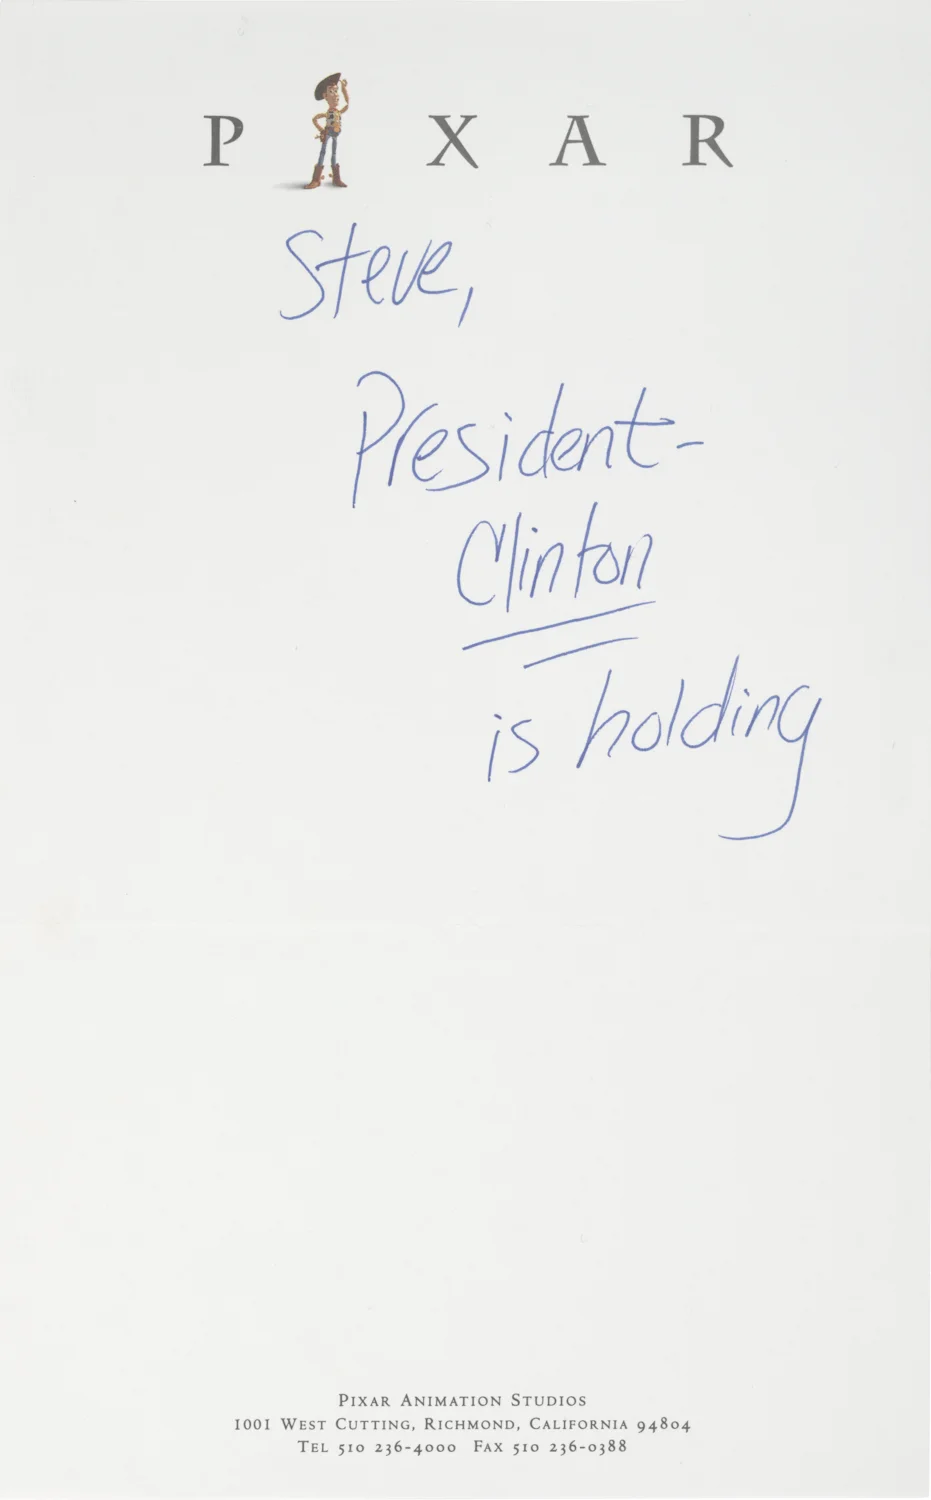 PIXAR
Steve,
President-
Clinton
is holding
PIXAR ANIMATION STUDIOS
1001 WEST CUTTING, RICHMOND, CALIFORNIA 94804
TEL 510 236-4000 FAX 510 236-0388